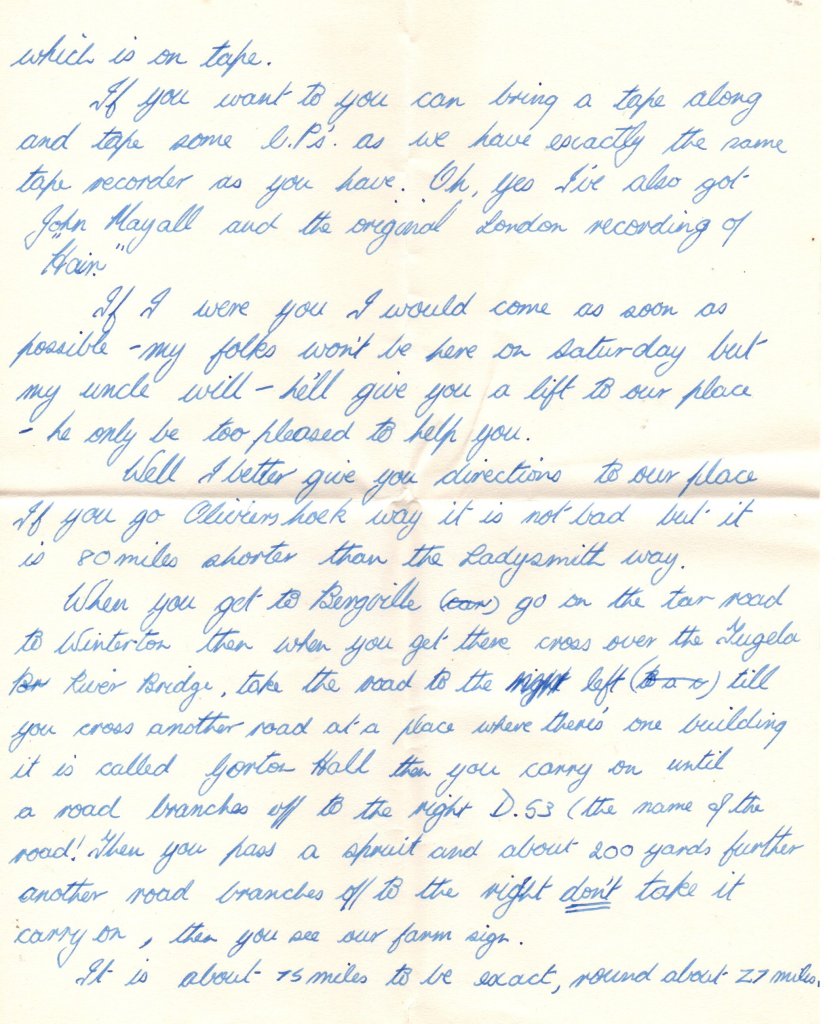 which is on tape.
If you want to you can bring a tape along
and tape some L.P's. as we have exactly the same
tape recorder as you have. Oh, yes I've also got
John Mayall and the original London recording of
"Hair."
If I were you I would come as soon as
possible - my folks won't be here on Saturday but
my uncle will - he'll give you a lift to our place
- he only be too pleased to help you.
Well I better give you directions to our place
If you go Oliviershoek way it is not bad but it
is 80 miles shorter than the Ladysmith way.
When you get to Bergville (car) go on the tar road
to Winterton then when you get there cross over the Tugela
Br River Bridge, take the road to the right left (to a r) till
you cross another road at a place where there's one building
it is called Gorton Hall then you carry on until
a road branches off to the right D.53 (the name of the
road! Then you pass a spruit and about 200 yards further
another road branches off to the right don't take it
carry on, then you see our farm sign.
It is about 75 miles to be exact, round about 27 miles.